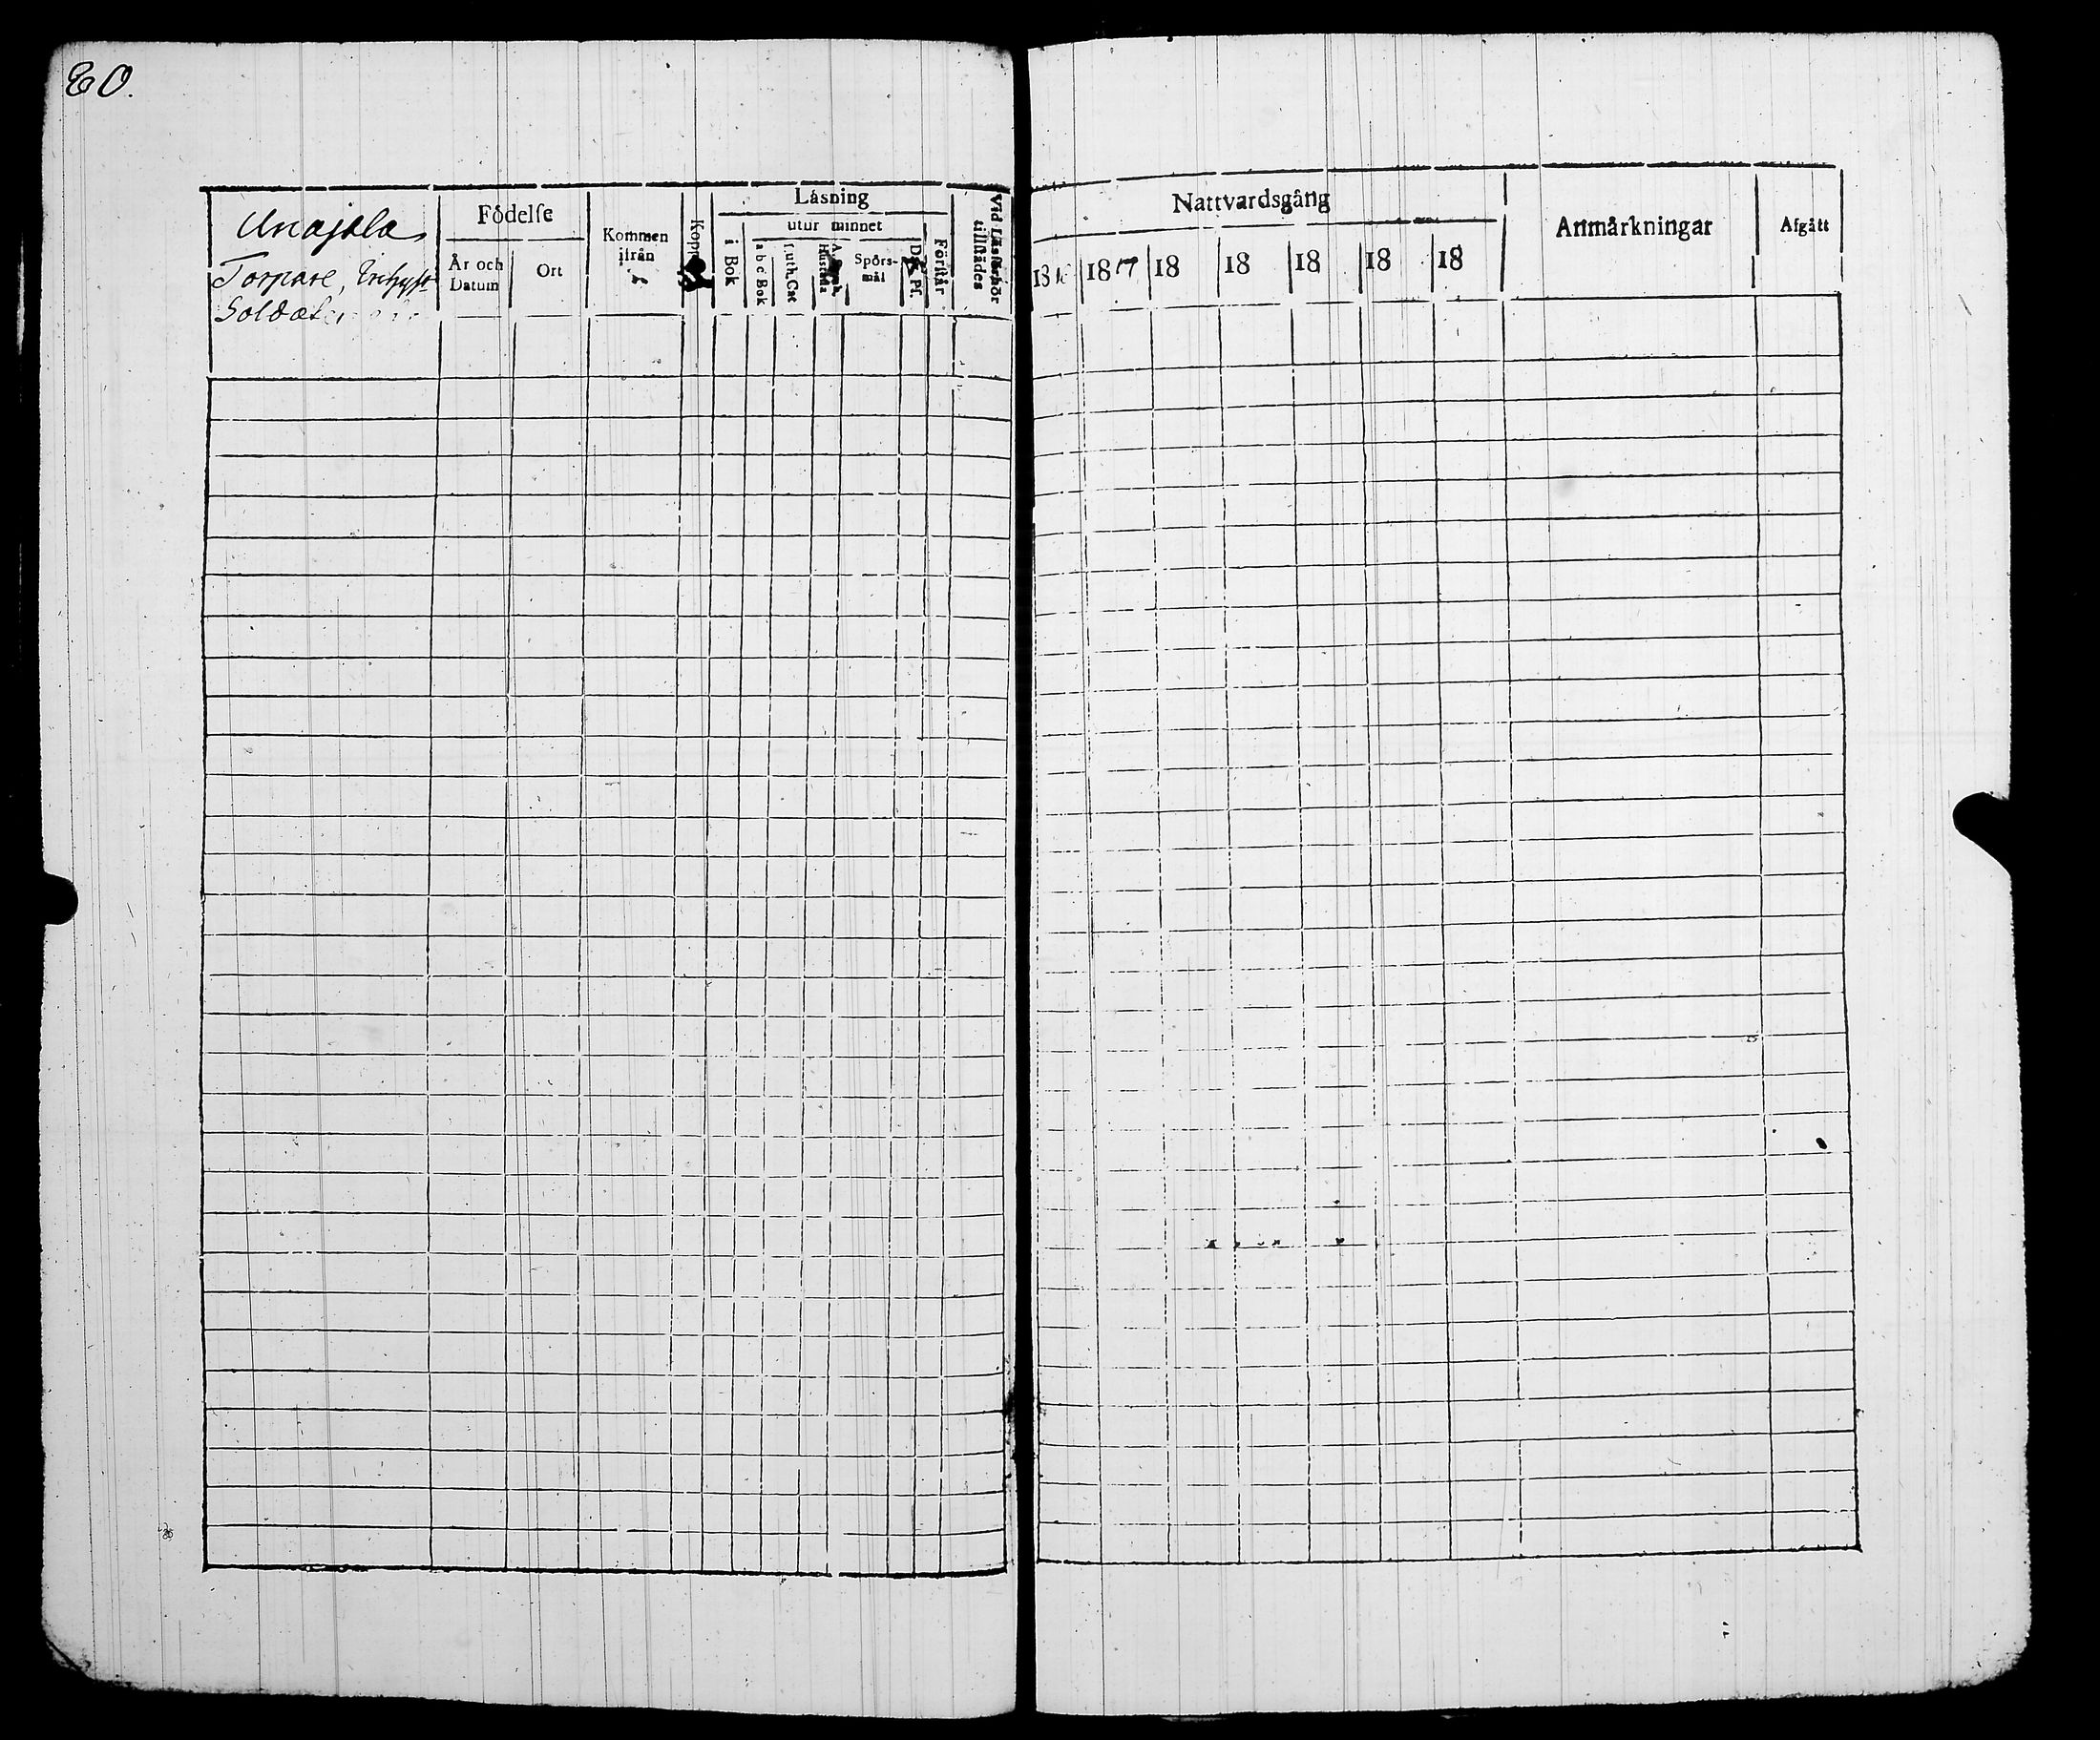 80.
Unajala
Torpare,
Soldater
Födelse
År och
Datum
Ort
Kommen
ifrån
Kopp
Läsning
i Bok
utur minnet
a b c Bok
Luth. Cat
Hustafla
Spörs-
mål
Förstår
Vid Läsförhör
tillstädes
Nattvardsgång
1816
1817
18
18
18
18
18
Anmärkningar
Afgått